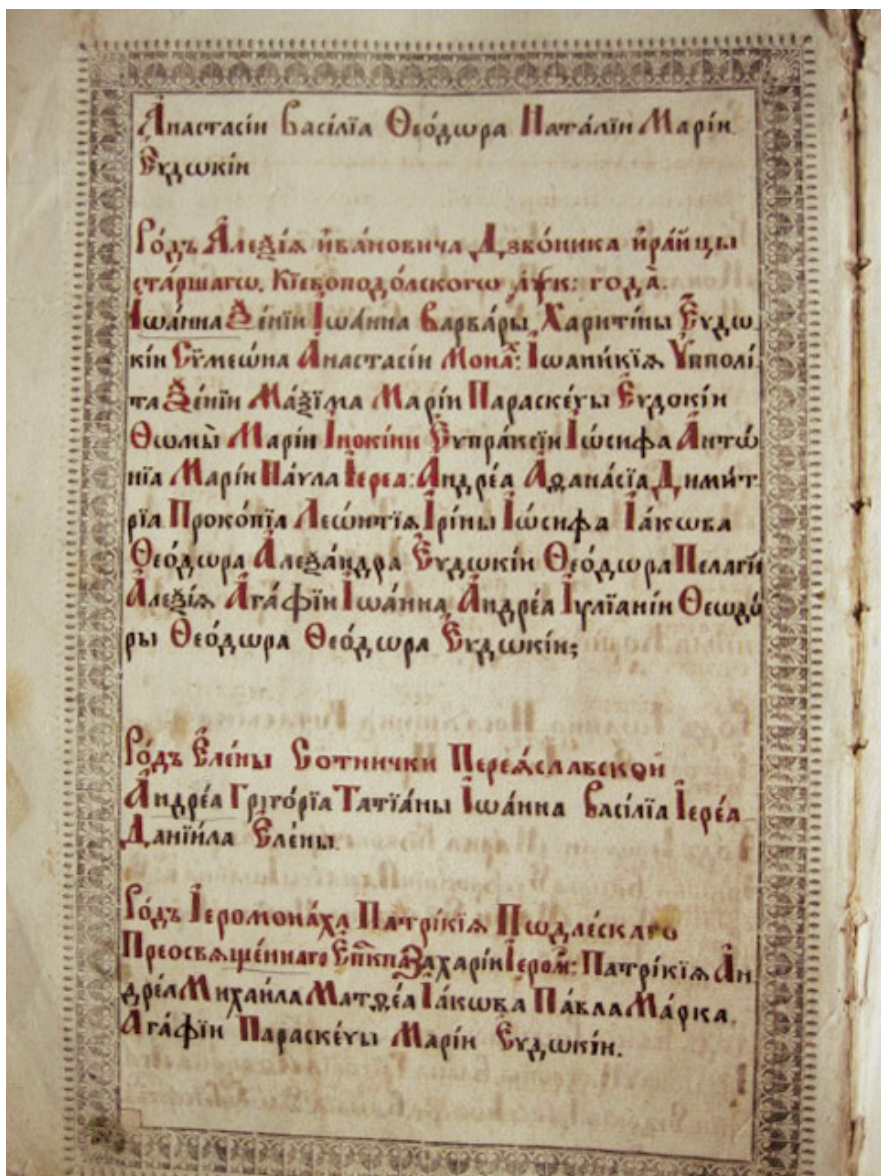 Анастасіи Васілїа Ѳеѻ́дѡра Наталїи Маріи
Еѵдѡкіи
Ро́дъ Алеѯі́ѧ Ива́новича Дзво́ника и҆ ра́йцы
ста́ршагѡ, Кїевоподо́лскогѡ а҂ѱк: года̀.
Іѡа́нна Ѯе́нїи Іѡа́нна Варва́ры Харити́ны Еѵдѡ
кіи Сѷмеѡ́на Анастасіи Мона́х: Іѡаники́ѧ Ѵпполі́
та Ѯе́нїи Ма́ѯїма Маріи Параске́ѵы Еѵдокіи
Ѳѡмы̀ Маріи И҆нокіни Еѵпра́ксїи Іѡ́сифа Анто́
нїа Маріи Па́ѵла Іереа: Андре́а Аѳана́сїа Дими́т
рїа Проко́пїа Леѡ́нтїѧ Ірі́ны Іѡ́сифа Іа́кѡва
Ѳеѻ́дѡра Алеѯа́ндра Еѵдѡкіи Ѳеѻ́дѡра Пелагіи
Але́ѯїѧ Ага́фїи Іѡа́нна Андре́а Іꙋлїанїи Ѳеѡдѡ́
ры Ѳеѻ́дѡра Ѳеѻ́дѡра Еѵдѡкіи;
Ро́дъ Еле́ны Сотнички Переѧ́славской
Андре́а Григо́рїа Татїа́ны Іѡа́нна Васі́лїа Іере́а
Данїи́ла Еле́ны.
Ро́дъ Іеромона́ха Патрі́кїѧ Пѡдле́скаго
Преосвѧще́ннаго Епⷭ҇кпа Захарїи Іером: Патрі́кїѧ Ан
дре́а Михаи́ла Матѳе́а Іа́кѡва Па́вла Ма́рка.
Ага́фїи Параске́ѵы Маріи Еѵдѡкіи.